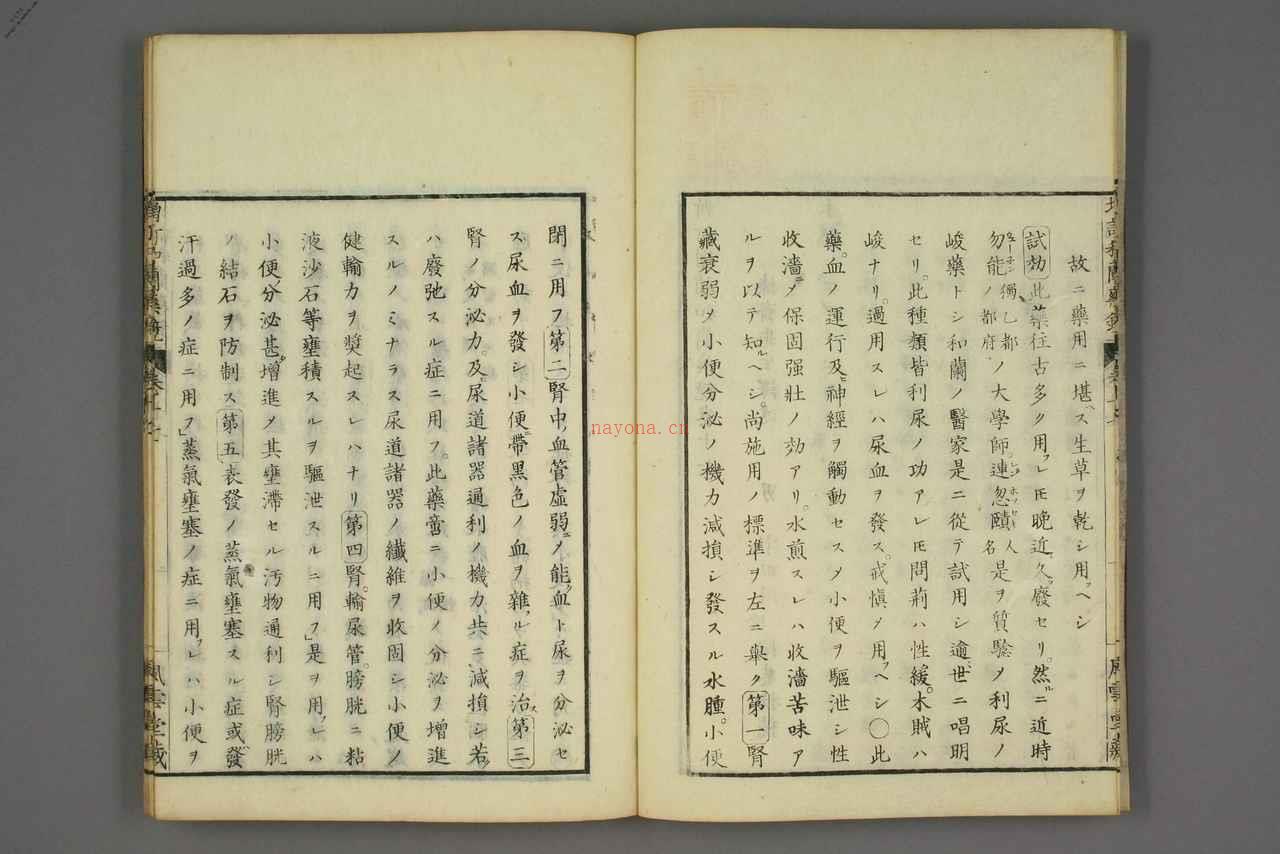 故ニ藥用ニ堪ヘス生草ヲ乾シ用フヘシ
試効此藥往古多ク用フレ𪜈晩近久ク廢セリ然ルニ近時
勿能獨乙都ノ都府ノ大學師連忽頤人名是ヲ質驗メ利尿ノ
峻藥トシ和蘭ノ醫家是ニ從テ試用シ逾世ニ唱明
セリ此種類皆利尿ノ功アレ𪜈問荊ハ性緩木賊ハ
峻ナリ過用スレハ尿血ヲ發ス戒愼メ用フヘシ〇此
藥血ノ運行及ヒ神經ヲ觸動セスメ小便ヲ驅泄シ性
收濇ニメ保固强壯ノ効アリ水煎スレハ收濇苦味ア
ルヲ以テ知ルヘシ尚施用ノ標準ヲ左ニ擧ク第一腎
藏衰弱メ小便分泌ノ機力減損シ發スル水腫小便
閉ニ用フ第二腎中血管虚弱ニメ能ク血ト尿ヲ分泌セ
ス尿血ヲ發シ小便ニ帶黑色ノ血ヲ雜ル症ヲ治ス第三
腎ノ分泌力及ヒ尿道諸器通利ノ機力共ニ減損シ若ク
ハ廢弛スル症ニ用フ此藥啻ニ小便ノ分泌ヲ增進
スルノミナラス尿道諸器ノ纖維ヲ收固シ小便ノ
健輸力ヲ奬起スレハナリ第四腎輸尿管膀胱ニ粘
液沙石等壅積スルヲ驅泄スルニ用フ是ヲ用フレハ
小便分泌甚タ增進メ其壅滯セル汚物通利シ腎膀胱
ノ結石ヲ防制ス第五表發ノ蒸氣壅塞スル症或ハ發
汗過多ノ症ニ用フ蒸氣壅塞ノ症ニ用フレハ小便ヲ
風雲堂藏
nayona.cn